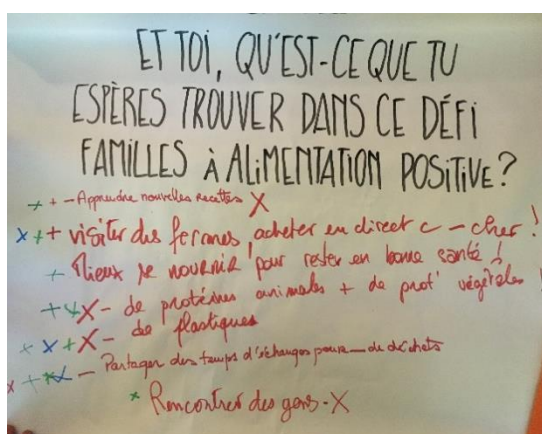 ET TOI, QU'EST-CE QUE TU
ESPÈRES TROUVER DANS CE DÉFI
FAMILLES À ALIMENTATION POSITIVE?
+ + - Apprendre nouvelles recettes X
x + + visiter des fermes, acheter en direct c - cher !
+ Mieux se nourrir pour rester en bonne santé !
+ + X - de protéines animales + de prot' végétales !
+ x + X - de plastiques
x + + x - Partager des temps d'échanges pour - de déchets
x Rencontrer des gens - X